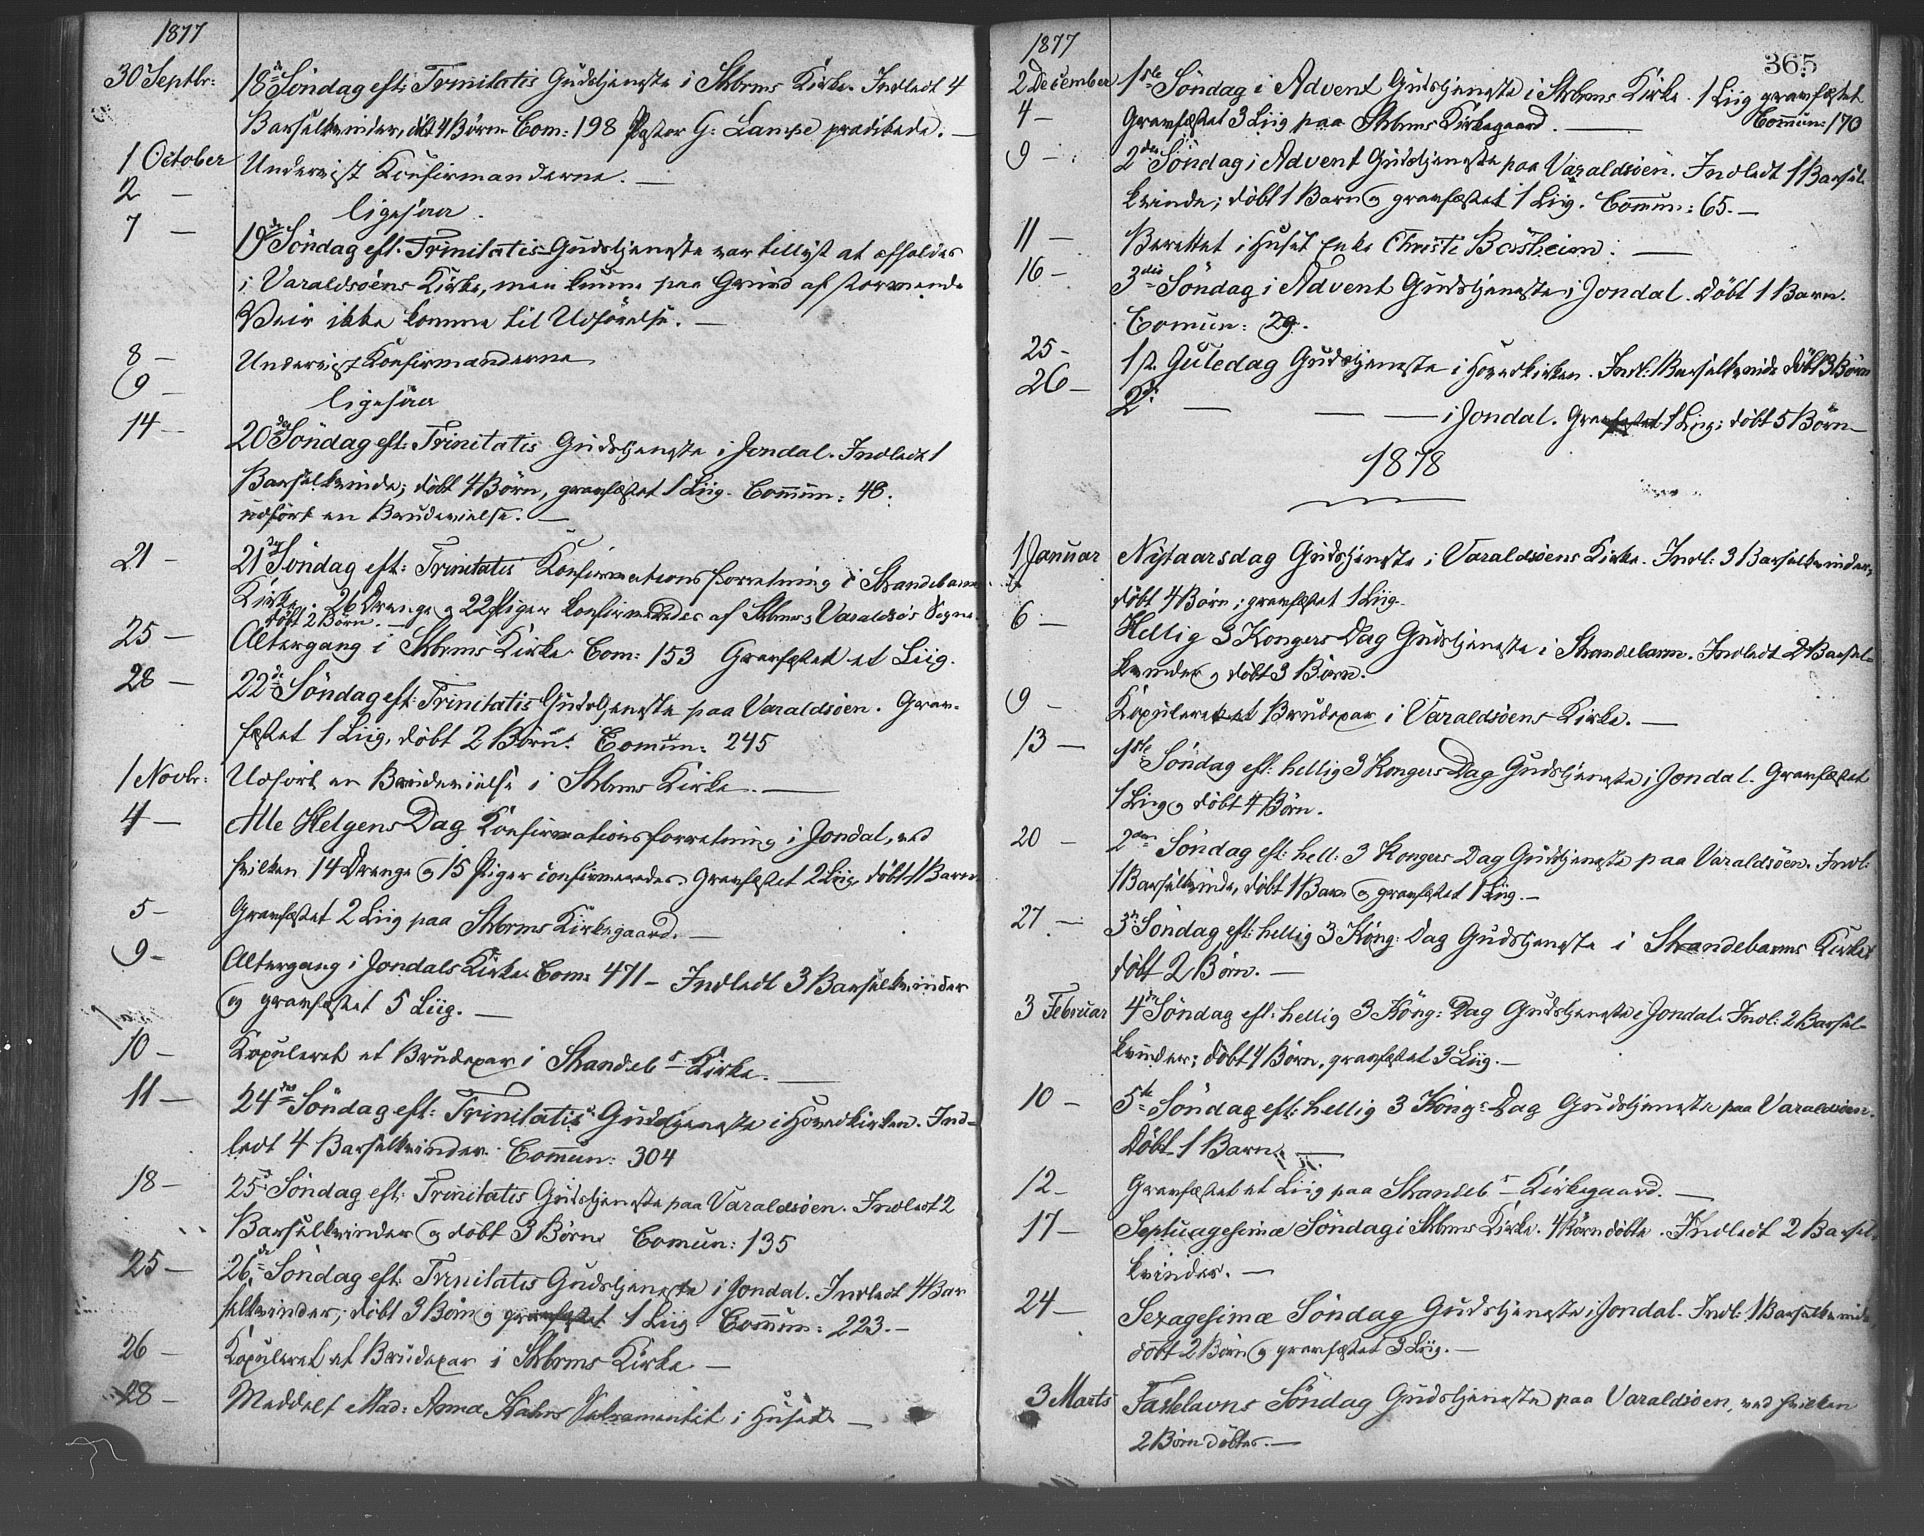 1877
30 Septbr: 18de Söndag eft: Trinitatis Gudstjeneste i Stbrms Kirke. Indledt 4
Barselkvinder, döbt 4 Börn Com: 198 Pastor G: Lampe prædikede. —
1 October Undervist Konfirmanderne. —
2 — ligesaa.
7 — 19de Söndag eft. Trinitatis Gudstjeneste var tillyst at afholdes
i Varaldsöens Kirke, men kunne paa Grund af stormende
Veir ikke komme til Udförelse. —
8 — Undervist Konfirmanderne
9 — ligesaa
14 — 20de Söndag eft: Trinitatis Gudstjeneste i Jondal. Indledt 1
Barselkvinde; döbt 4 Börn, gravfæstet 1 Liig. Commun: 48.
udfört en Brudevielse. —
21 — 21de Söndag eft: Trinitatis Konfirmationsforretning i Strandebarm
Kirke. 26 Drenge og 22 Piger konfirmeredes af Stbrms & Varaldsö's Sogne
döbt 2 Börn. —
25 — Altergang i Stbrms Kirke Com: 153 Gravfæstet et Liig.
28 — 22de Söndag eft: Trinitatis Gudstjeneste paa Varaldsöen. Grav-
fæstet 1 Liig, döbt 2 Börn. Comun: 245
1 Novbr: Udfört en Brudevielse i Stbrms Kirke. —
4 — Alle Helgens Dag Konfirmationsforretning i Jondal, ved
hvilken 14 Drenge og 15 Piger confirmeredes. Gravfæstet 2 Liig, döbt 1 Barn
5 — Gravfæstet 2 Liig paa Stbrms Kirkegaard. —
9 — Altergang i Jondals Kirke Com: 471 — Indledt 3 Barselkvinder
og gravfæstet 5 Liig. —
10 — Kopuleret et Brudepar i Strandeb. Kirke. —
11 — 24de Söndag eft: Trinitatis Gudstjeneste i Hovedkirken. Ind-
ledt 4 Barselkvinder. Commun: 304
18 — 25de Söndag eft: Trinitatis Gudstjeneste paa Varaldsöen. Indledt 2
Barselkvinder og döbt 3 Börn Comun: 135
25 — 26de Söndag eft: Trinitatis Gudstjeneste i Jondal. Indledt 4 Bar
selkvinder; döbt 3 Börn og gravfæstet 1 Liig Commun: 223. —
26 — Kopuleret et Brudepar i Stbrms Kirke —
28 — Meddelt Mad: Anna Sakramentet i Huset —
1877
365
2 December 1ste Söndag i Advent Gudstjeneste i Stbrms Kirke. 1 Liig gravfæstet
Commun: 170
4 — Gravfæstet 3 Liig paa Stbrms Kirkegaard. —
9 — 2den Söndag i Advent Gudstjeneste paa Varaldsöen. Indledt 1 Barsel
kvinde; döbt 1 Barn og gravfæstet 1 Liig. Commun: 65. —
11 — Berettet i Huset Enke Christi Bosheim. —
16 — 3die Söndag i Advent Gudstjeneste i Jondal. Döbt 1 Barn.
Comun: 29.
25 — 1ste Juledag Gudstjeneste i Hovedkirken. Indl: 1 Barselkvinde döbt 3 Börn
26 — 2d: — — — i Jondal. Gravfæstet 1 Liig; döbt 5 Börn —
1878
1 Januar Nytaarsdag Gudstjeneste i Varaldsöens Kirke. Indl: 3 Barselkvinder,
döbt 4 Börn; gravfæstet 1 Liig.
6 — Hellig 3 Kongers Dag Gudstjeneste i Strandebarm. Indledt 2 Barsel-
kvinder og döbt 3 Börn.
9 — Kopuleret et Brudepar i Varaldsöens Kirke. —
13 — 1ste Söndag eft: hellig 3 Kongers Dag Gudstjeneste i Jondal. Gravfæstet
1 Liig og döbt 4 Börn.
20 — 2den Söndag eft: hell: 3 Kongers Dag Gudstjeneste paa Varaldsöen. Indl:
1 Barselkvinde, döbt 1 Barn og gravfæstet 1 Liig. —
27 — 3de Söndag eft: hellig 3 Köng: Dag Gudstjeneste i Strandebarms Kirke
döbt 2 Börn. —
3 Februar 4de Söndag eft: hellig 3 Köng: Dag Gudstjeneste i Jondal. Indl: 2 Barsel-
kvinder; döbt 4 Börn, gravfæstet 3 Liig. —
10 — 5te Söndag eft: hellig 3 Köng: Dag Gudstjeneste paa Varaldsöen.
Döbt 1 Barn. —
12 — Gravfæstet et Liig paa Strandeb. Kirkegaard. —
17 — Septuagesimæ Söndag i Stbrms Kirke. 4 Börn döbte. Indledt 2 Barsel-
kvinder. —
24 — Sexagesimæ Söndag Gudstjeneste i Jondal. Indl: 1 Barselkvinde,
döbt 2 Börn og gravfæstet 3 Liig. —
3 Marts Fastelavns Söndag Gudstjeneste paa Varaldsöen, ved hvilken
2 Börn döbtes. —